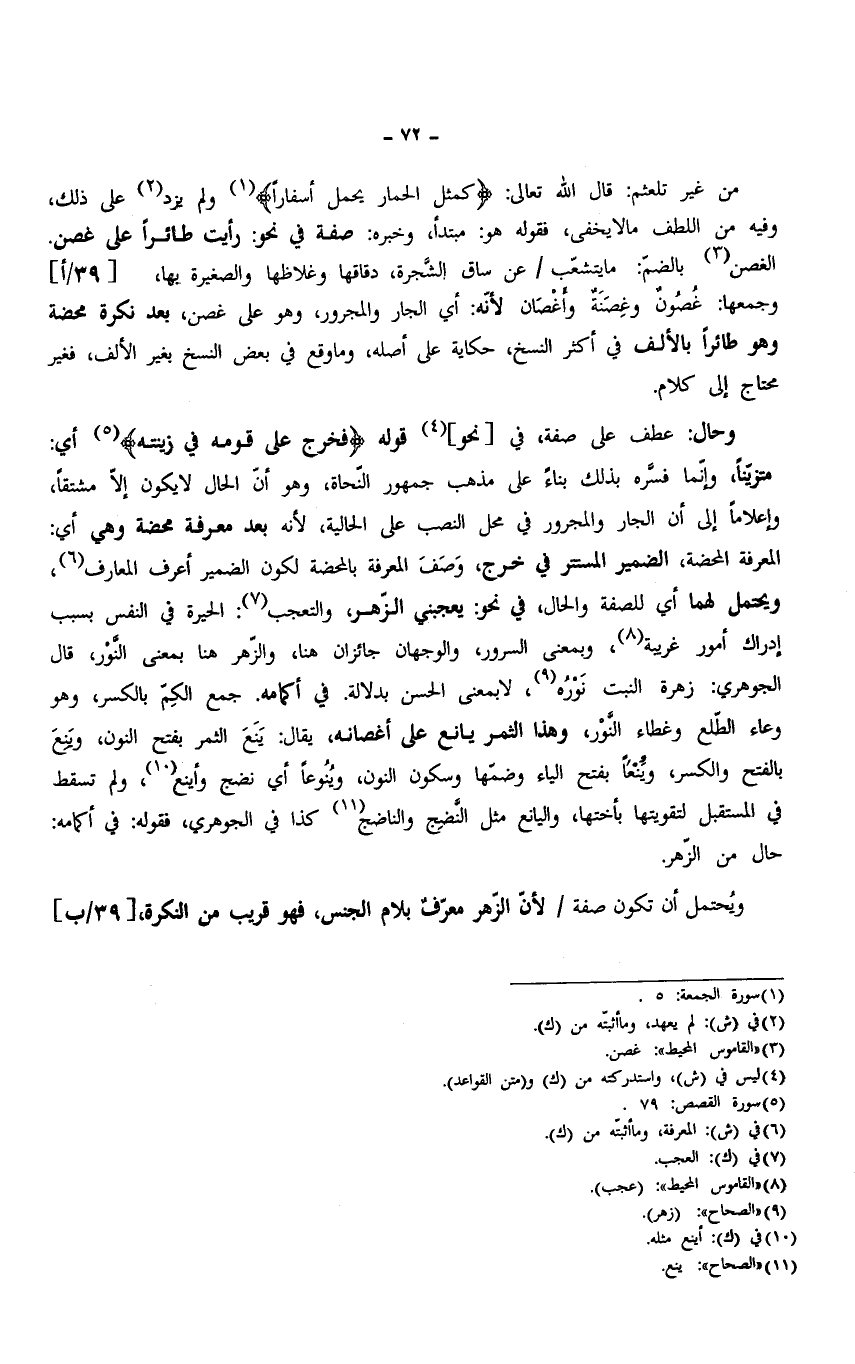 - ٧٢ -
من غير تلعثم: قال الله تعالى: ﴿كمثل الحمار يحمل أسفاراً﴾(١) ولم يزد(٢) على ذلك،
وفيه من اللطف مالايخفى، فقوله هو: مبتدأ، وخبره: صفة في نحو: رأيت طائراً على غصن.
الغصن(٣) بالضمّ: مايتشعّب / عن ساق الشَّجرة، دقاقها وغلاظها والصغيرة بها، [٣٩/أ]
وجمعها: غُصُونٌ وغِصَنَةٌ وأَغْصَان لأنّه: أي الجار والمجرور، وهو على غصن، بعد نكرة محضة
وهو طائراً بالألف في أكثر النسخ، حكاية على أصله، وماوقع في بعض النسخ بغير الألف، فغير
محتاج إلى كلام.
وحال: عطف على صفة، في [نحو](٤) قوله ﴿فخرج على قومه في زينته﴾(٥) أي:
متزيّناً، وإنّما فسَّره بذلك بناءً على مذهب جمهور النّحاة، وهو أنّ الحال لايكون إلاّ مشتقاً،
وإعلاماً إلى أن الجار والمجرور في محل النصب على الحالية، لأنه بعد معرفة محضة وهي أي:
المعرفة المحضة، الضمير المستتر في خرج، وَصَفَ المعرفة بالمحضة لكون الضمير أعرف المعارف(٦)،
ويحتمل لهما أي للصفة والحال، في نحو: يعجبني الزّهر، والتعجب(٧): الحيرة في النفس بسبب
إدراك أمور غريبة(٨)، وبمعنى السرور، والوجهان جائزان هنا، والزّهر هنا بمعنى النَّوْر، قال
الجوهري: زهرة النبت نَوْرُه(٩)، لابمعنى الحسن بدلالة. في أكمامه. جمع الكِمّ بالكسر، وهو
وعاء الطّلع وغطاء النَّوْر، وهذا الثمر يانع على أغصانه، يقال: يَنَعَ الثمر بفتح النون، ويَنِعَ
بالفتح والكسر، ويَُنْعَاً بفتح الياء وضمّها وسكون النون، ويُنُوعاً أي نضج وأينع(١٠)، ولم تسقط
في المستقبل لتقويتها بأختها، واليانع مثل النَّضِيج والناضج(١١) كذا في الجوهري، فقوله: في أكمامه:
حال من الزّهر.
ويُحتمل أن تكون صفة / لأنّ الزّهر معرّفٌ بلام الجنس، فهو قريب من النكرة،[٣٩/ب]
(١)سورة الجمعة: ٥ .
(٢)في (ش): لم يعهد، وماأثبتّه من (ك).
(٣)«القاموس المحيط»: غصن.
(٤)ليس في (ش)، واستدركته من (ك) و(متن القواعد).
(٥)سورة القصص: ٧٩ .
(٦)في (ش): المعرفة، وماأثبتّه من (ك).
(٧)في (ك): العجب.
(٨)«القاموس المحيط»: (عجب).
(٩)«الصحاح»: (زهر).
(١٠)في (ك): أينع مثله.
(١١)«الصحاح»: ينع.